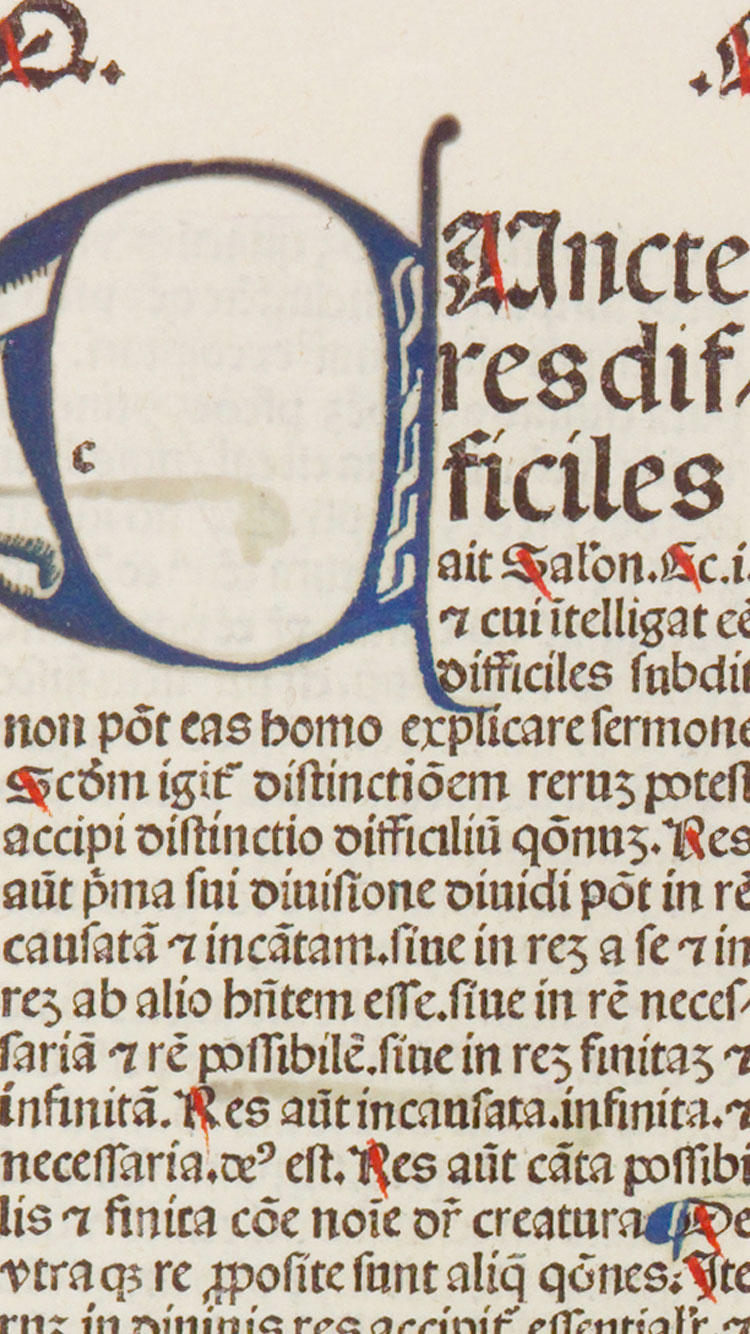 c
AUncte
res dif⸗
ficiles
ait Salon. Ec. i.
⁊ cui ĩtelligat eē
difficiles ſubdit
non põt eas homo explicare ſermone
Scdm igit᷑ diſtinctiõem reruꝫ poteſt
accipi diſtinctio difficiliũ qõnuꝫ. Res
aũt p̃ma ſui diuiſione diuidi põt in rē
cauſatã ⁊ incãtam. ſiue in reꝫ a ſe ⁊ in
reꝫ ab alio hñtem eſſe. ſiue in rē neceſ⸗
ſariã ⁊ rē poſſibilē. ſiue in reꝫ finitaꝫ ⁊
infinitã. Res aũt incauſata. infinita. ⁊
neceſſaria. deꝰ eſt. Res aũt cãta poſſibi
lis ⁊ finita cõe noĩe dr̃ creatura De
vtraqꝫ re ꝓpoſite ſunt aliq̃ qõnes. Ite
ruꝫ in diuinis res accipit᷑ eſſential'r ⁊